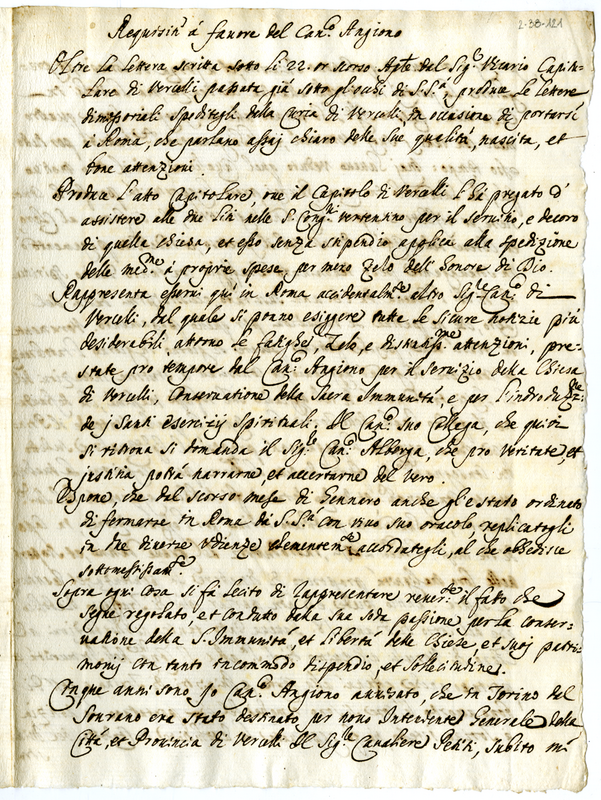 Requisiti á favore del Can.º Angiono
2-38-121
Oltre la lettera scritta sotto li 22. or scorso Ag.to dal Sig.r Vicario Capito=
lare di Vercelli passata giá sotto gli occhi di S. S.tá, produce le lettere
dimissoriali speditegli della Curia di Vercelli, in occasione di portarsi
á Roma, che parlano assaj chiaro delle sue qualitá, nascita, et
bone attenzioni.
Produce l'atto Capitolare, ove il Capitolo di Vercelli l há pregato d'
assistere alle due liti nelle S. Cong.ni vertentino per il servitio, e decoro
di quella chiesa, et esso senza stipendio applica alla spedizione
delle med.me á proprie spese, per mero zelo dell'Honore di Dio.
Rappresenta esservi quí in Roma accidentalm.te altro Sig.le Can.º di
Vercelli, dal quale si ponno esiggere tutte le sicure notizie piú
desiderabili attorno le fatighe, zelo, e distintiss.me attenzioni, pre=
state pro tempore dal Can.º Angiono per il servizio della Chiesa
di Vercelli, Conservatione della Sacra Immunitá, e per l'introduz.ne
de j Santi esercizij spirituali. Il Can.º suo Collega, che quivi
si ritrova si domanda il Sig.le Can.º Alberga, che pro veritate, et
justitia potrá narrarne, et accertarne del vero.
Espone, che dal scorso mese di Gennaro anche gl'e stato ordinato
di fermarse in Roma da S. S.tá con vivo suo oracolo replicatogli
in tre diverse udienze clementem.te accordategli, al che obbedisce
sottomessissam.te.
Sopra ogni cosa si fá lecito di rappresentare rever.te il fatto che
segue regolato, et condutto dalla sua soda passione per la conser=
vatione della S. Immunitá, et libertá delle Chiese, et suoj patri=
monij con tanto incommodo dispendio, et sollecitudine.
Cinque anni sono, jo Can.º Angiono avvisato, che in Torino dal
Sovrano era stato destinato per novo Intendente Generale della
Cittá, et Provincia di Vercelli il Sig.le Cavaliere Petiti, subito mi